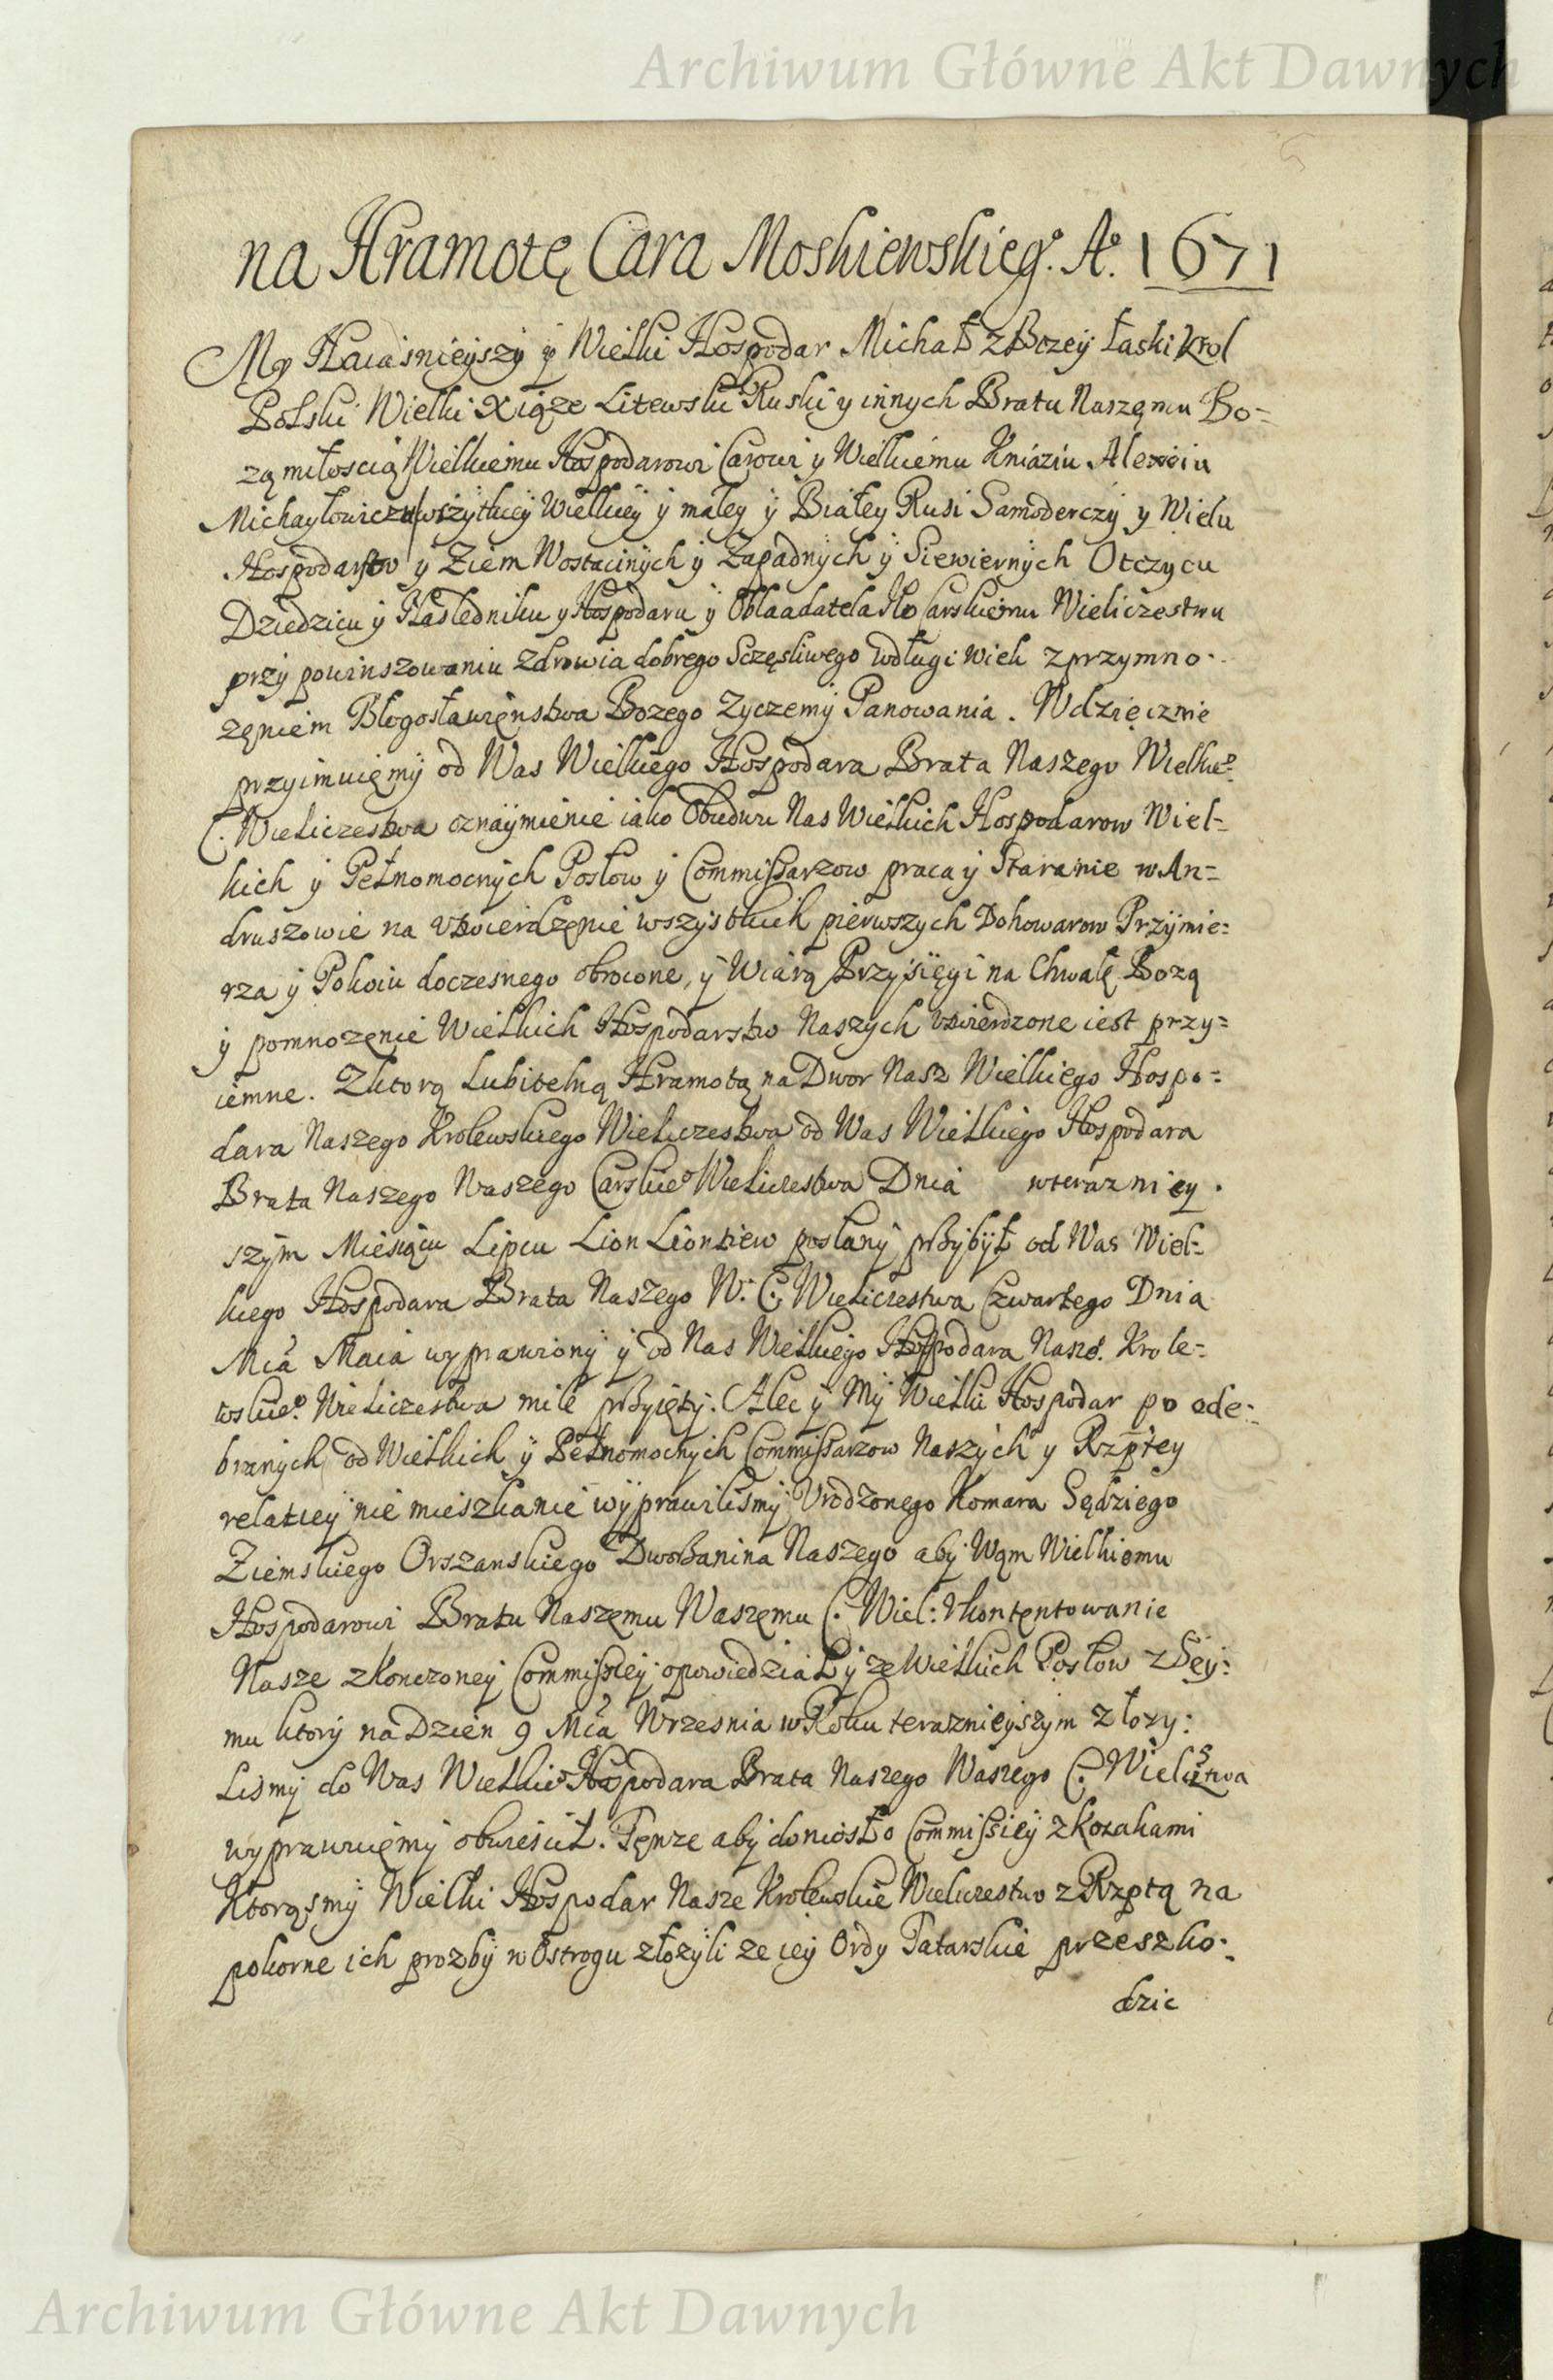 Archiwum Główne Akt Dawnych
na Hramotę Cara Moskiewskieg⁰. A⁰. 1671
My Naiasnieyszy y Wielki Hospodar Michał z Bozey łaski Krol
Polski Wielki Xiąze Litewski Ruski y innych Bratu Naszemu Bo=
zą miłoscią Wielkiemu Hospodarowi Carowi y Wielkiemu Kniaziu Alexieiu
Michayłowiczu wszytkiey Wielkiey y małey y Białey Rusi Samoderczy y Wielu
Hospodarstw y Ziem Wostacznych y Zapadnych y Siewiernych Otczycu
Dziedzicu y Nasledniku y Hospodaru y Obladatela Ko Carskiemu Wieliczestwu
przy powinszowaniu zdrowia dobrego Sczęsliwego wdługi wiek zprzymno-
zęniem Błogosławięnstwa Bozego Zyczemy Panowania. Wdzięcznie
przyimuięmy od Was Wielkiego Hospodara Brata Naszego Wielkie⁰
C. Wieliczestwa oznaymienie iako Obudwu Nas Wielkich Hospodarow Wiel=
kich y Pełnomocnych Posłow y Commissarzow praca y Staranie w An=
druszowie na utwierdzęnie wszystkich pierwszych Dohoworow Przymie=
rza y Pokoiu doczesnego obrocone, y Wiarą Przysięgi na Chwałę Bozą
y pomnozęnie Wielkich Hospodarstw Naszych utwierdzone iest przy=
iemne. Zktorą Lubitelną Hramotą na Dwor Nasz Wielkiego Hospo=
dara Naszego Krolewskiego Wieliczestwa od Was Wielkiego Hospodara
Brata Naszego Waszego Carskie⁰ Wieliczestwa Dnia wterazniey.
szym Miesiącu Lipcu Lion Liontiew posłany przybył od Was Wiel=
kiego Hospodara Brata Naszego W. C. Wieliczestwa Czwartego Dnia
Mca Maia wyprawiony y od Nas Wielkiego Hospodara Nasze⁰. Krole=
wskie⁰. Wieliczestwa mile przyięty. Alec y My Wielki Hospodar po ode=
branych od Wielkich y Pełnomocnych Commissarzow Naszych y Rzptey
relacyey nie mieszkanie wyprawilismy Urodzonego Komara Sędziego
Ziemskiego Orszanskiego Dworzanina Naszego aby Wąm Wielkiemu
Hospodarowi Bratu Naszemu Waszęmu C. Wiel: Ukontentowanie
Nasze zkonczoney Commissiey opowiedział y ze Wielkich Posłow z Sey:
mu ktory na Dzien 9 Mca Wrzesnia w Roku teraznieyszym złozy:
lismy do Was Wielkie⁰ Hospodara Brata Naszego Waszego C. Wieliczstwa
wyprawuięmy obwiescił. Tęnze aby doniosł o Commissiey z Kozakami
Ktorąsmy Wielki Hospodar Nasze Krolewskie Wieliczestwo z Rzptą na
pokorne ich prozby w Ostrogu złozyli ze iey Ordy Tatarskie przeszko:
dzic
Archiwum Główne Akt Dawnych